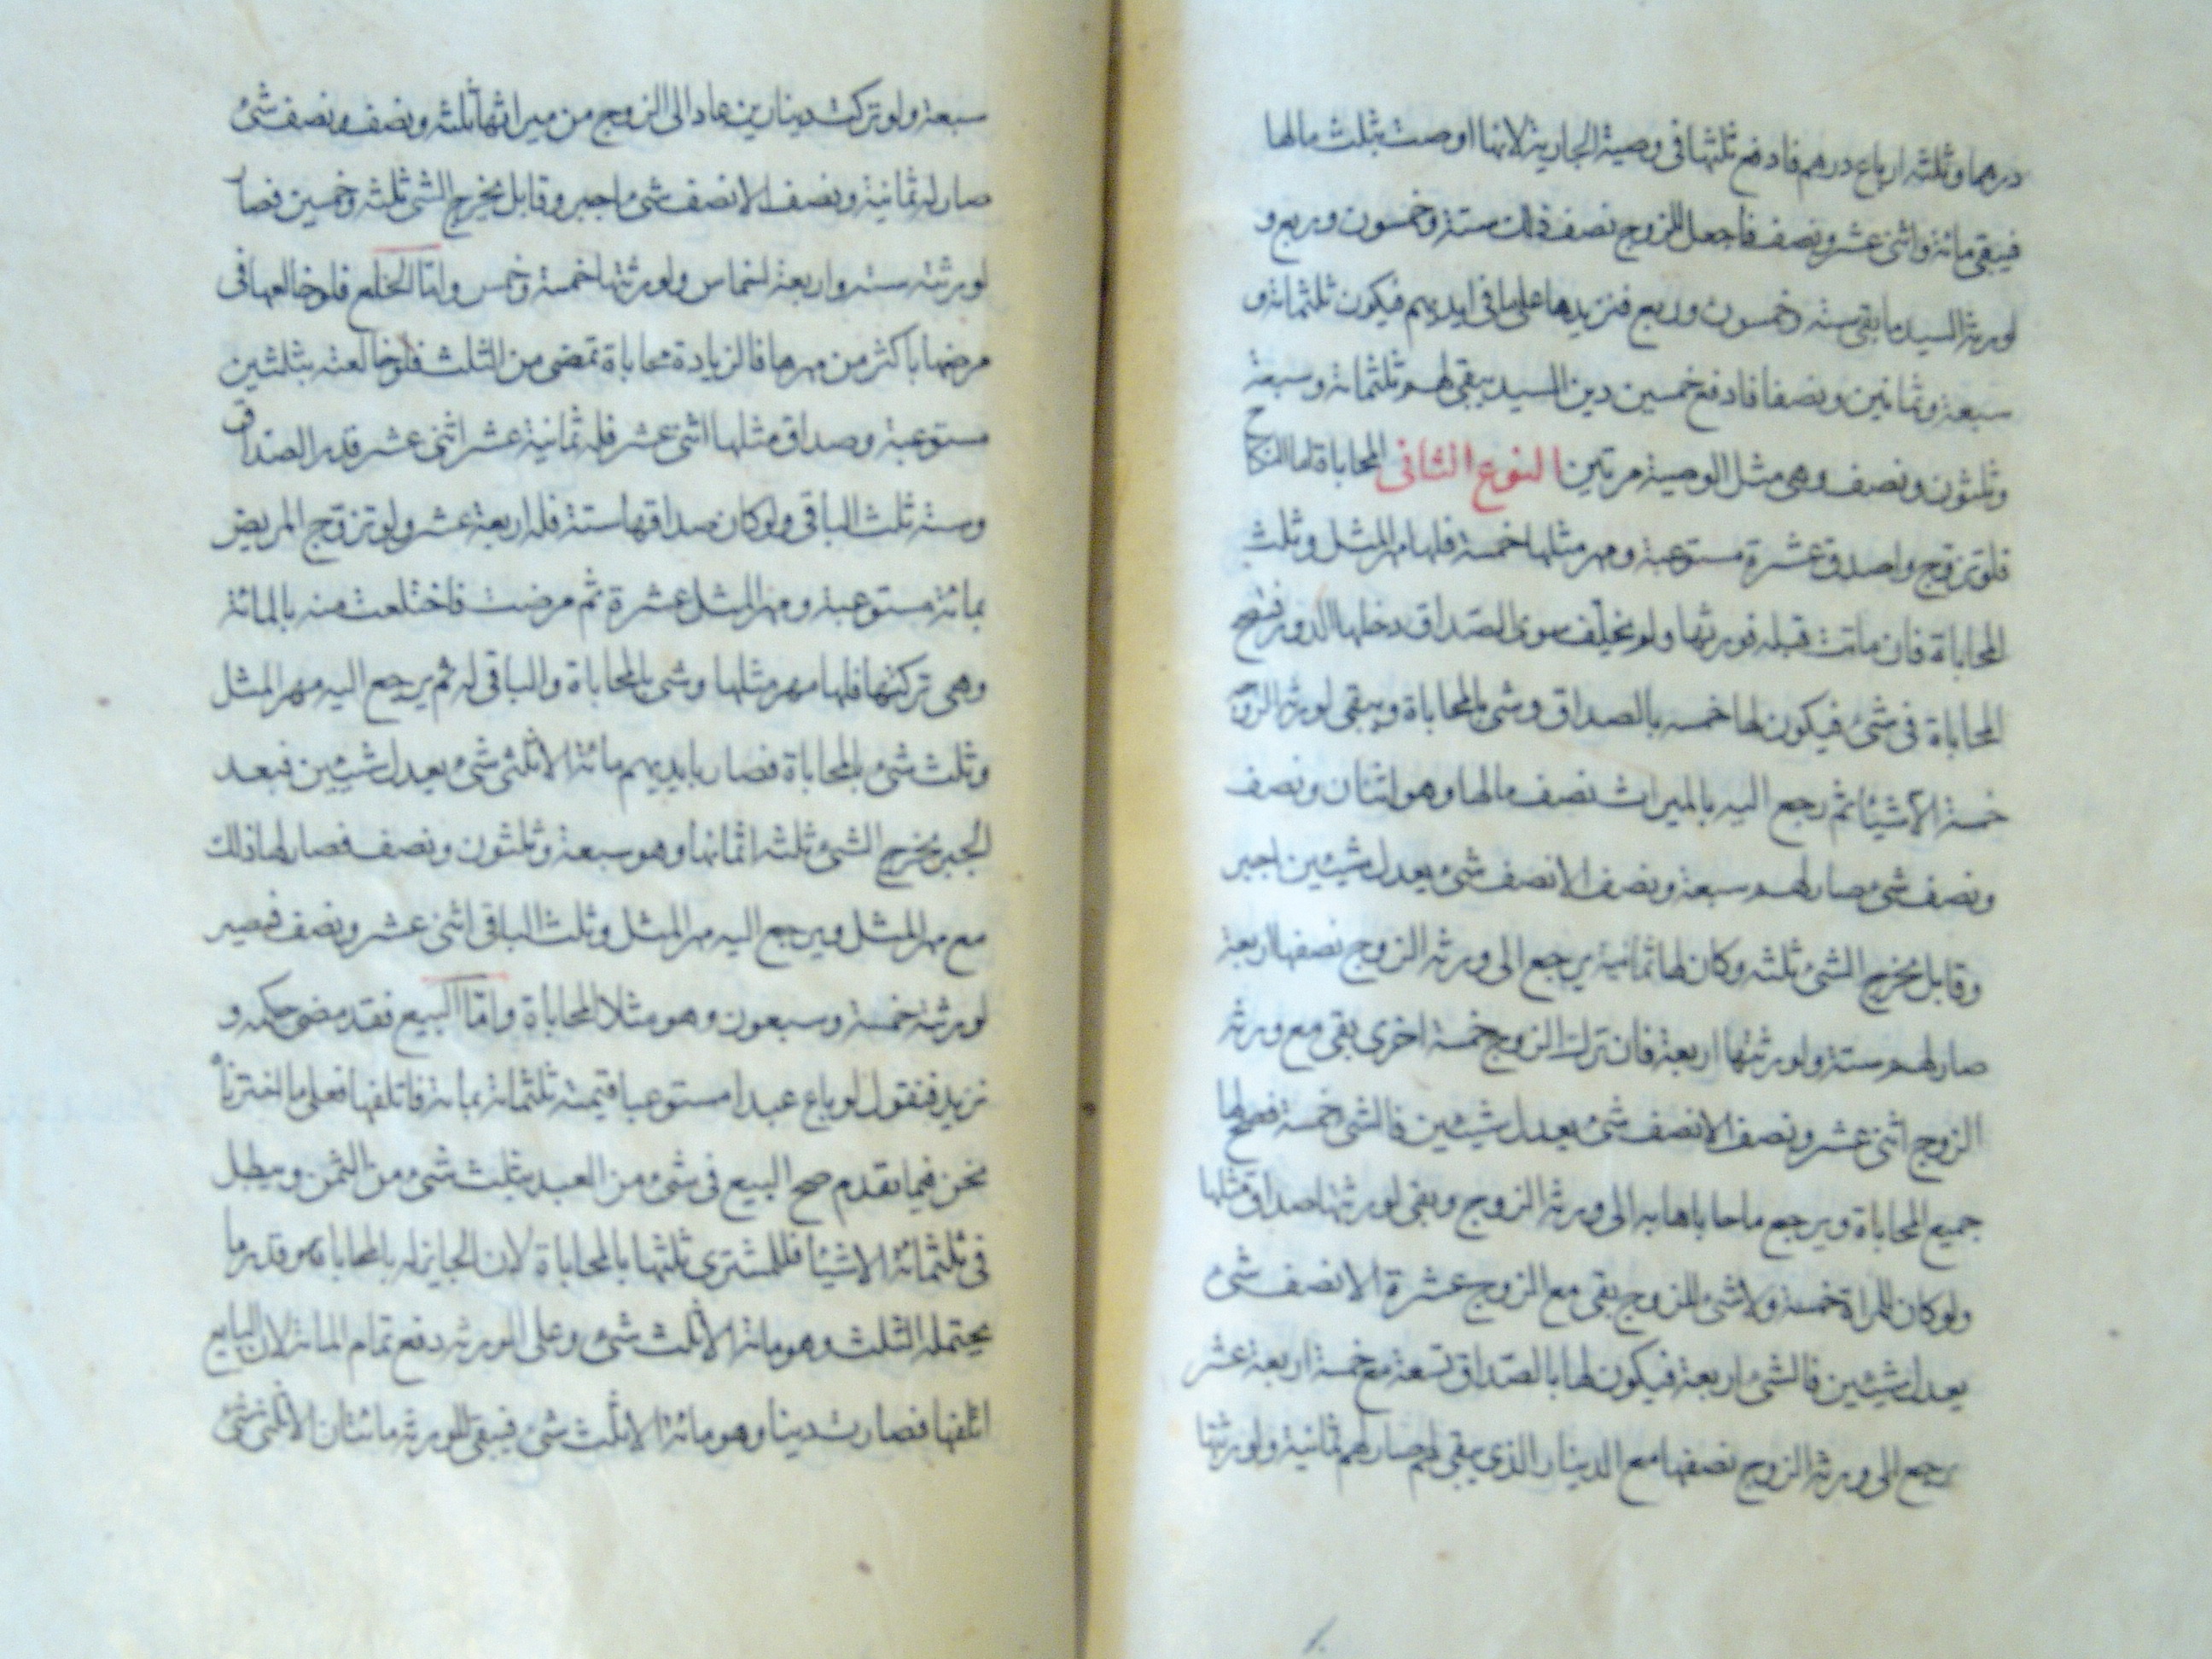 درهما وثلثه ارباع درهم فادفع ثلثها فى وصية الجارية لانها اوصت بثلث مالها
فيبقى مائة واثنى عشر ونصف فاجعل للزوج نصف ذلك ستة وخمسون وربع و
لورثة السيد ما بقى ستة وخمسون وربع فنزيدها على ما فى ايديهم فيكون ثلثمائة و
سبعة وثمانين ونصفا فادفع خمسين دين السيد يبقى لهم ثلثمائة وسبعة
وثلثون ونصف وهى مثل الوصية مرتين النوع الثانى المحاباة اما النكاح
فلو تزوج واصدق عشرة مستوعبة ومهر مثلها خمسة فلها مهر المثل وثلث
المحاباة فان ماتت قبله فورثها ولم تخلف سوى الصداق دخلها الدور فتصح
المحاباة فى شىء فيكون لها خمسه بالصداق وشىء بالمحاباة ويبقى لورثة الزوج
خمسة الا شيئا ثم رجع اليه بالميراث نصف مالها وهو اثنان ونصف
ونصف شىء صار لهم سبعة ونصف الا نصف شىء يعدل شيئين اجبر
وقابل يخرج الشىء ثلثه وكان لها ثمانية يرجع الى ورثه الزوج نصفها اربعة
صار لهم ستة ولورثتها اربعة فان ترك الزوج خمسة اخرى بقى مع ورثه
الزوج اثنى عشر ونصف الا نصف شىء يعدل شيئين فالشى خمسة فصح لها
جميع المحاباة ويرجع ما حاباها به الى ورثه الزوج وبقى لورثتها صداق مثلها
ولو كان للمراة خمسة ولا شىء للزوج بقى مع الزوج عشرة الا نصف شىء
يعدل شيئين فالشىء اربعة فيكون لها بالصداق تسعة مع خمسة اربعة عشر
رجع الى ورثه الزوج نصفها مع الدينار الذى بقى لهم صار لهم ثمانية ولورثتها
سبعة ولو تركت دينارين عاد الى الزوج من ميراثها ثلثه ونصف ونصف شىء
صار له ثمانية ونصف الا نصف شىء اجبر وقابل يخرج الشى ثلثه وخمسين فصار
لورثته سته واربعة اخماس ولورثتها خمسة وخمس واما الخلع فلو خالعها فى
مرضها باكثر من مهرها فالزيادة محاباة تمضى من الثلث فلو خالعته بثلثين
مستوعبة وصداق مثلها اثنى عشر فله ثمانية عشر اثنى عشر قدر الصداق
وستة ثلث الباقى ولو كان صداقها ستة فله اربعة عشر ولو تزوج المريض
بمائة مستوعبة ومهر المثل عشرة ثم مرضت فاختلعت منه بالمائة
وهى تركتها فلها مهر مثلها وشى بالمحاباة والباقى له ثم يرجع اليه مهر المثل
وثلث شىء بالمحاباة فصار بايديهم مائة الا ثلثى شىء يعدل شيئين فبعد
الجبر يخرج الشىء ثلثه اثمانها وهو سبعة وثلثون ونصف فصار لها ذلك
مع مهر المثل ويرجع اليه مهر المثل وثلث الباقى اثنى عشر ونصف فيصير
لورثته خمسة وسبعون وهو مثلا المحاباة واما البيع فقد مضى حكمه و
نزيد فنقول لو باع عبدا مستوعبا قيمته ثلثمائة بمائة فاتلفها فعلى ما اخترناه
نحن فيما تقدم صح البيع فى شىء من العبد بثلث شىء من الثمن ويبطل
فى ثلثمائة الا شيئا فللمشترى ثلثها بالمحاباة لان الجايز له بالمحاباة هو قدر ما
يحتمله الثلث وهو مائة الا ثلث شىء وعلى الورثه دفع تمام المائة لان البايع
اتلفها فصارت دينا وهو مائة الا ثلث شىء فيبقى للورثه مائتان الا ثلثى شىء